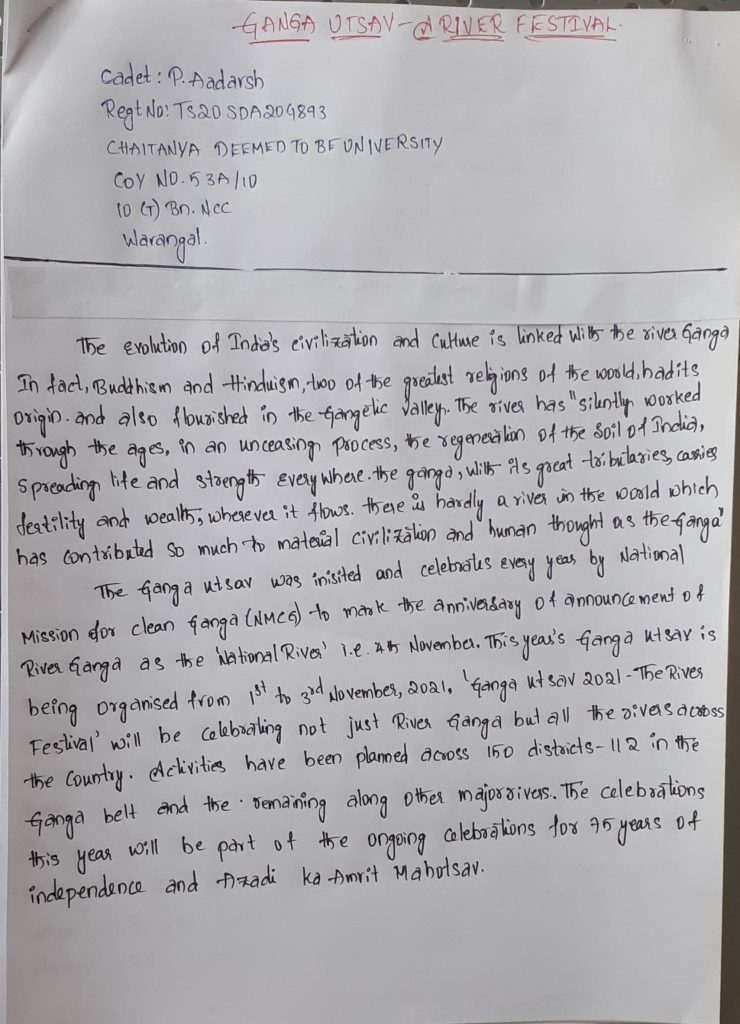 GANGA UTSAV - A RIVER FESTIVAL.
Cadet: P. Aadarsh
Regt No: TS20SDA204893
CHAITANYA DEEMED TO BE UNIVERSITY
COY NO. 53A/10
10 (T) Bn. NCC
Warangal.
The evolution of India's civilization and culture is linked with the river Ganga
In fact, Buddhism and Hinduism, two of the greatest religions of the world, had its
origin. and also flourished in the Gangetic Valley. The river has "silently worked
through the ages, in an unceasing process, the regeneration of the soil of India,
spreading life and strength everywhere. the ganga, with its great tributaries, carries
fertility and wealth, wherever it flows. there is hardly a river in the world which
has contributed so much to material civilization and human thought as the Ganga"
The Ganga utsav was inisited and celebrates every year by National
Mission for clean Ganga (NMCG) to mark the anniversary of announcement of
River Ganga as the 'National River' i.e. 4th November. This year's Ganga utsav is
being organised from 1st to 3rd November, 2021. 'Ganga utsav 2021 - The River
Festival' will be celebrating not just River Ganga but all the rivers across
the Country. Activities have been planned across 150 districts - 112 in the
Ganga belt and the remaining along other major rivers. The celebrations
this year will be part of the ongoing celebrations for 75 years of
independence and Azadi ka Amrit Mahotsav.